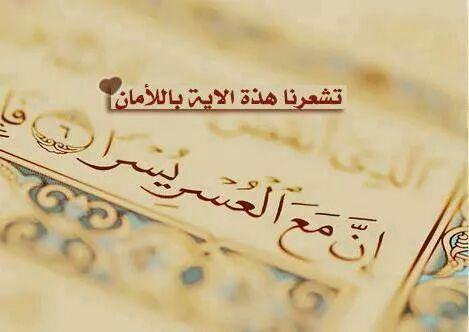 تشعرنا هذة الاية باللأمان
الذي أنقض
إِنَّ مَعَ الْعُسْرِ يُسْرًا ٦ فإ